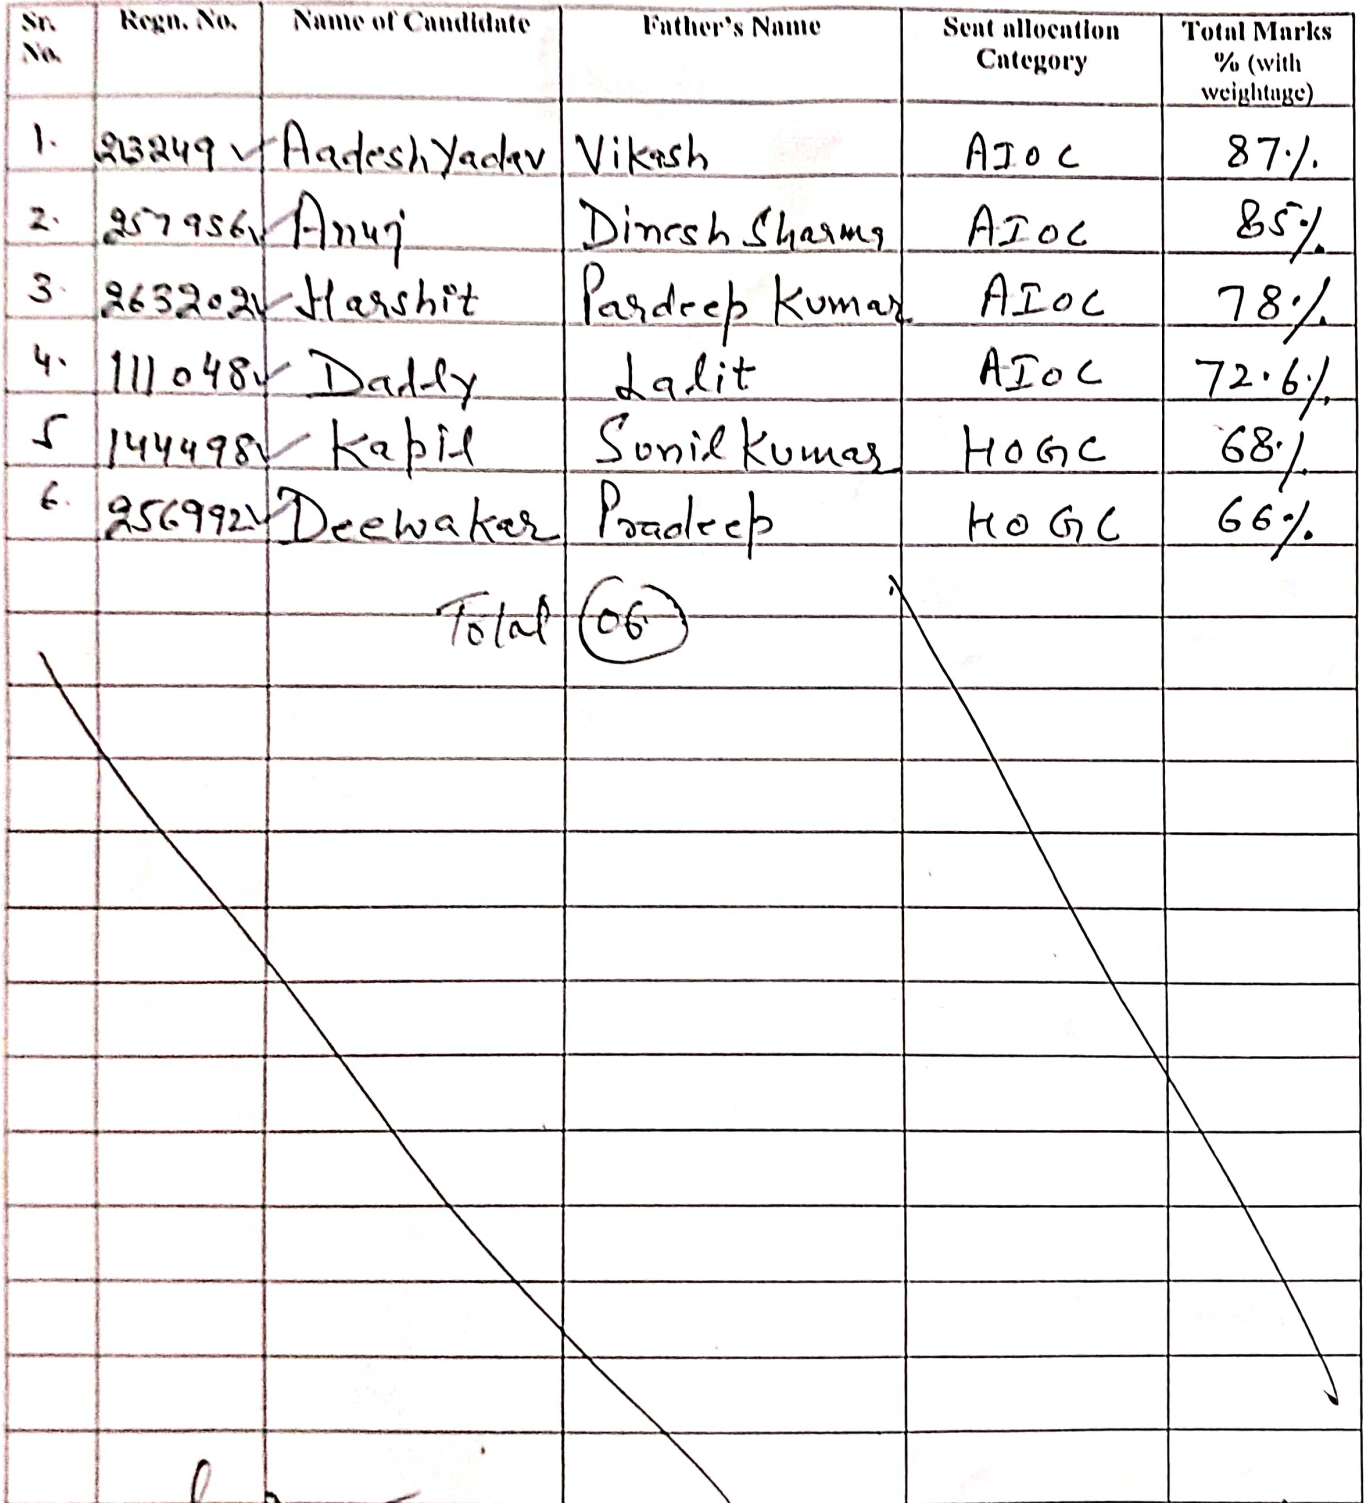 Sr. No. Regn. No. Name of Candidate Father's Name Seat allocation Category Total Marks % (with weightage)
1. 213249 ✓ Aadesh Yadav Vikash AIOC 87%
2. 257956 ✓ Anuj Dinesh Sharma AIOC 85%
3. 263202 ✓ Harshit Pardeep Kumar AIOC 78%
4. 111048 ✓ Daddy Lalit AIOC 72.6%
5 144498 ✓ Kapil Sunil Kumar HOGC 68%
6. 256992 ✓ Deewakar Pradeep HOGC 66%
Total 06